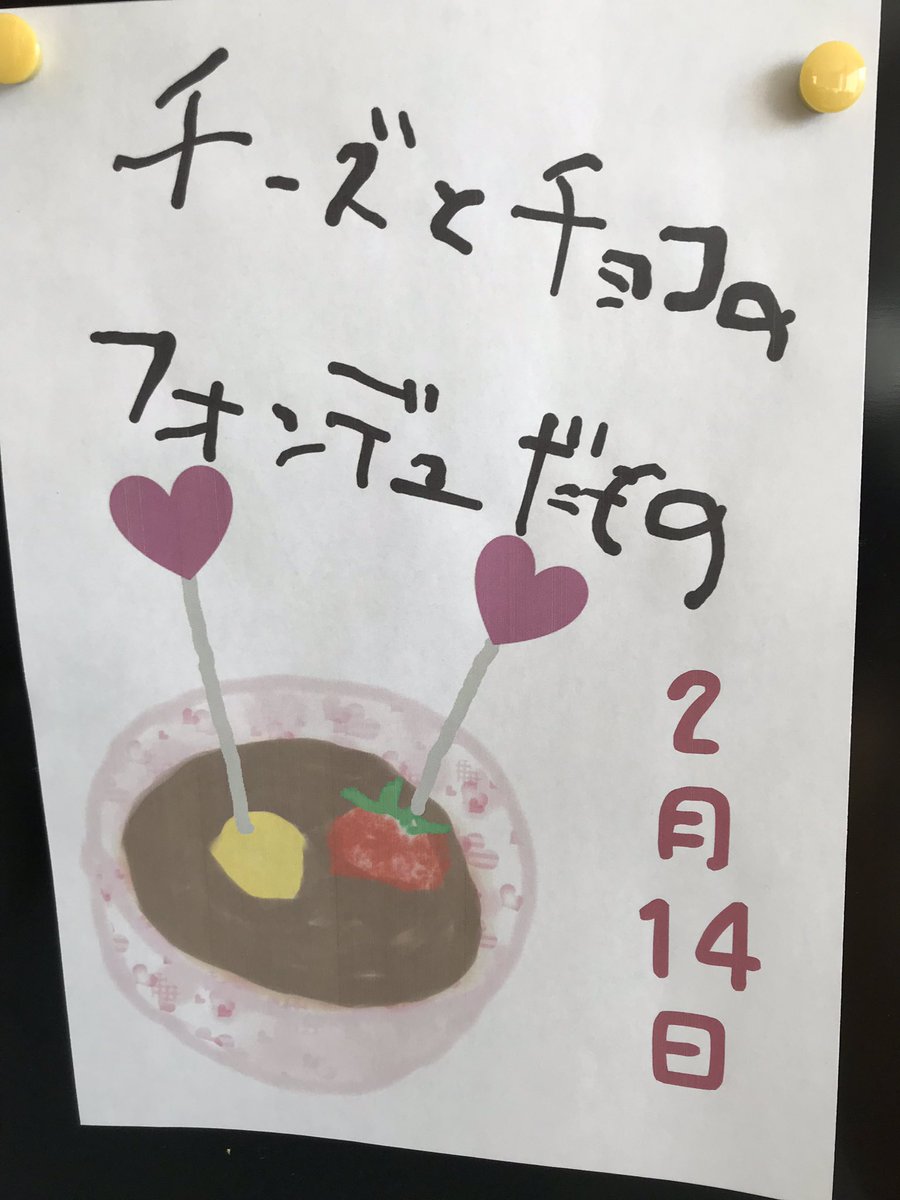 チーズとチョコの
フォンデュだもの
2月14日